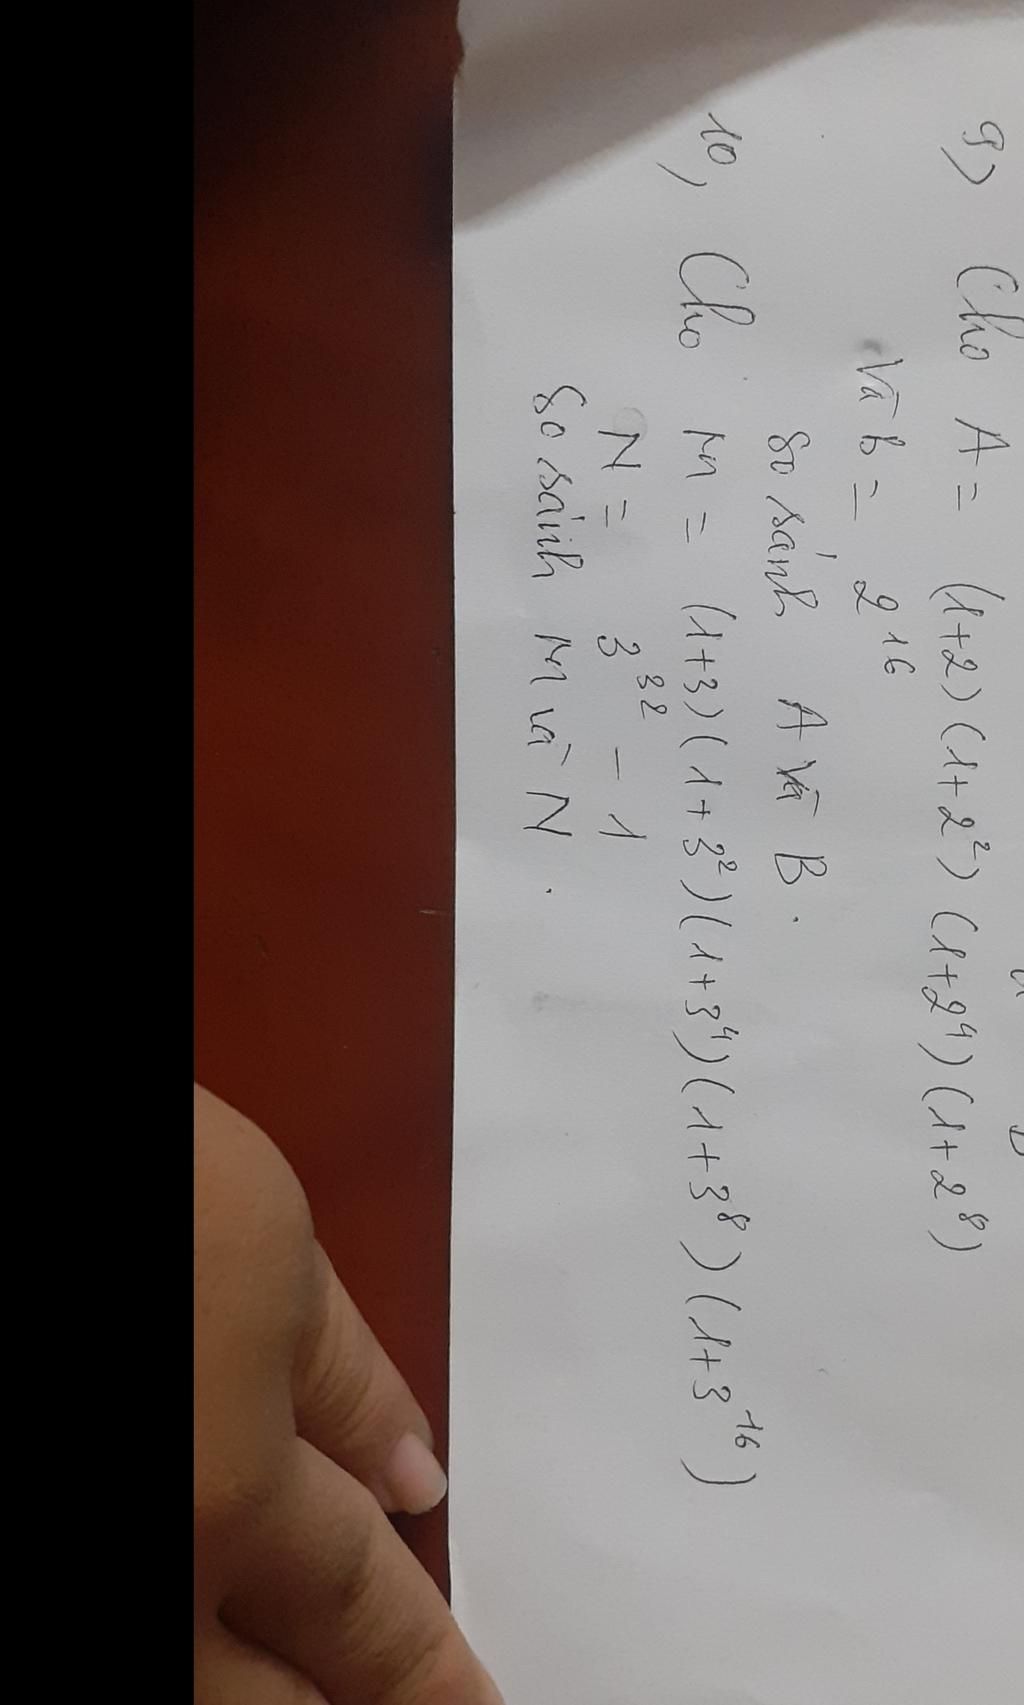 9) Cho A = (1+2)(1+2²)(1+2⁴)(1+2⁸)
Và B = 2¹⁶
So sánh A Và B.
10, Cho M = (1+3)(1+3²)(1+3⁴)(1+3⁸)(1+3¹⁶)
N = 3³² - 1
So sánh M và N.